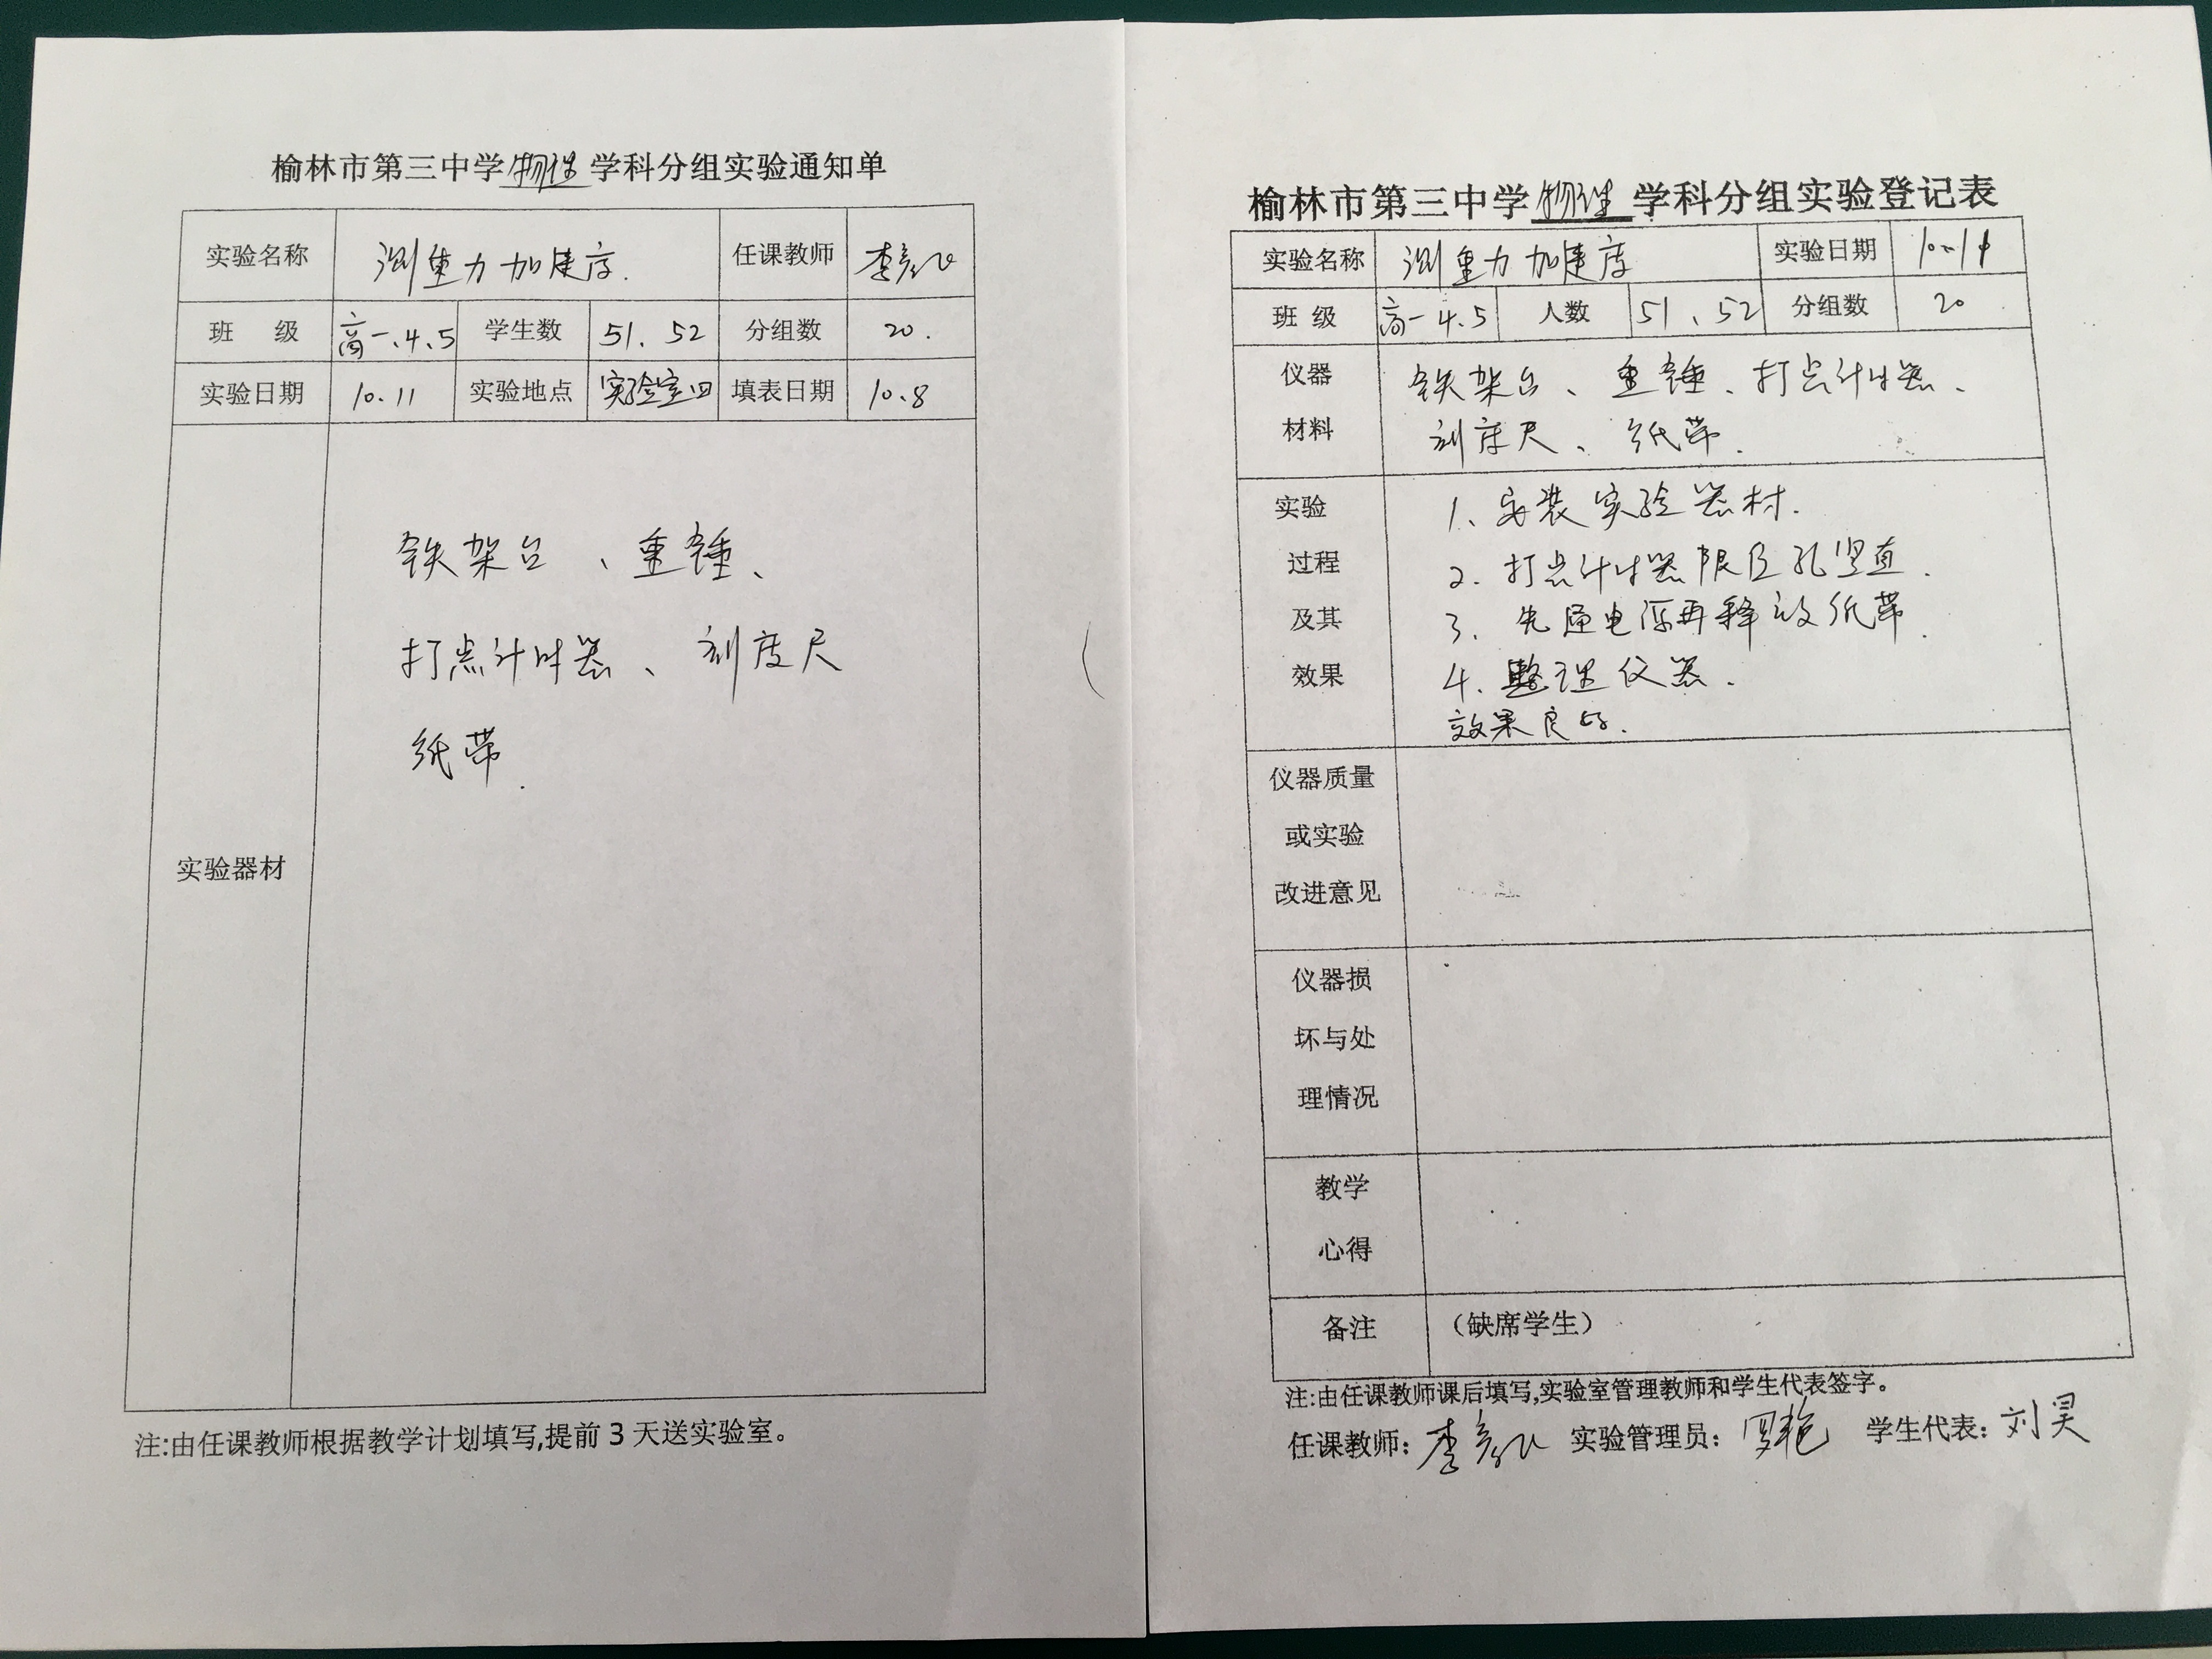 榆林市第三中学物理学科分组实验通知单
实验名称 测重力加速度. 任课教师 李
班 级 高一、4、5 学生数 51、52 分组数 20.
实验日期 10.11 实验地点 实验室四 填表日期 10.8
实验器材
铁架台、重锤、
打点计时器、刻度尺
纸带.
注:由任课教师根据教学计划填写,提前3天送实验室。
榆林市第三中学物理学科分组实验登记表
实验名称 测重力加速度 实验日期
班 级 高一4.5 人数 51、52 分组数 20
仪器 铁架台、重锤、打点计时器、
材料 刻度尺、纸带.
实验 1、安装实验器材.
过程 2.打点计时器限位孔竖直.
及其 3、先通电源再释放纸带.
效果 4、整理仪器.
效果良好.
仪器质量
或实验
改进意见
仪器损
坏与处
理情况
教学
心得
备注 （缺席学生）
注:由任课教师课后填写,实验室管理教师和学生代表签字。
任课教师: 李 实验管理员: 罗艳 学生代表: 刘昊